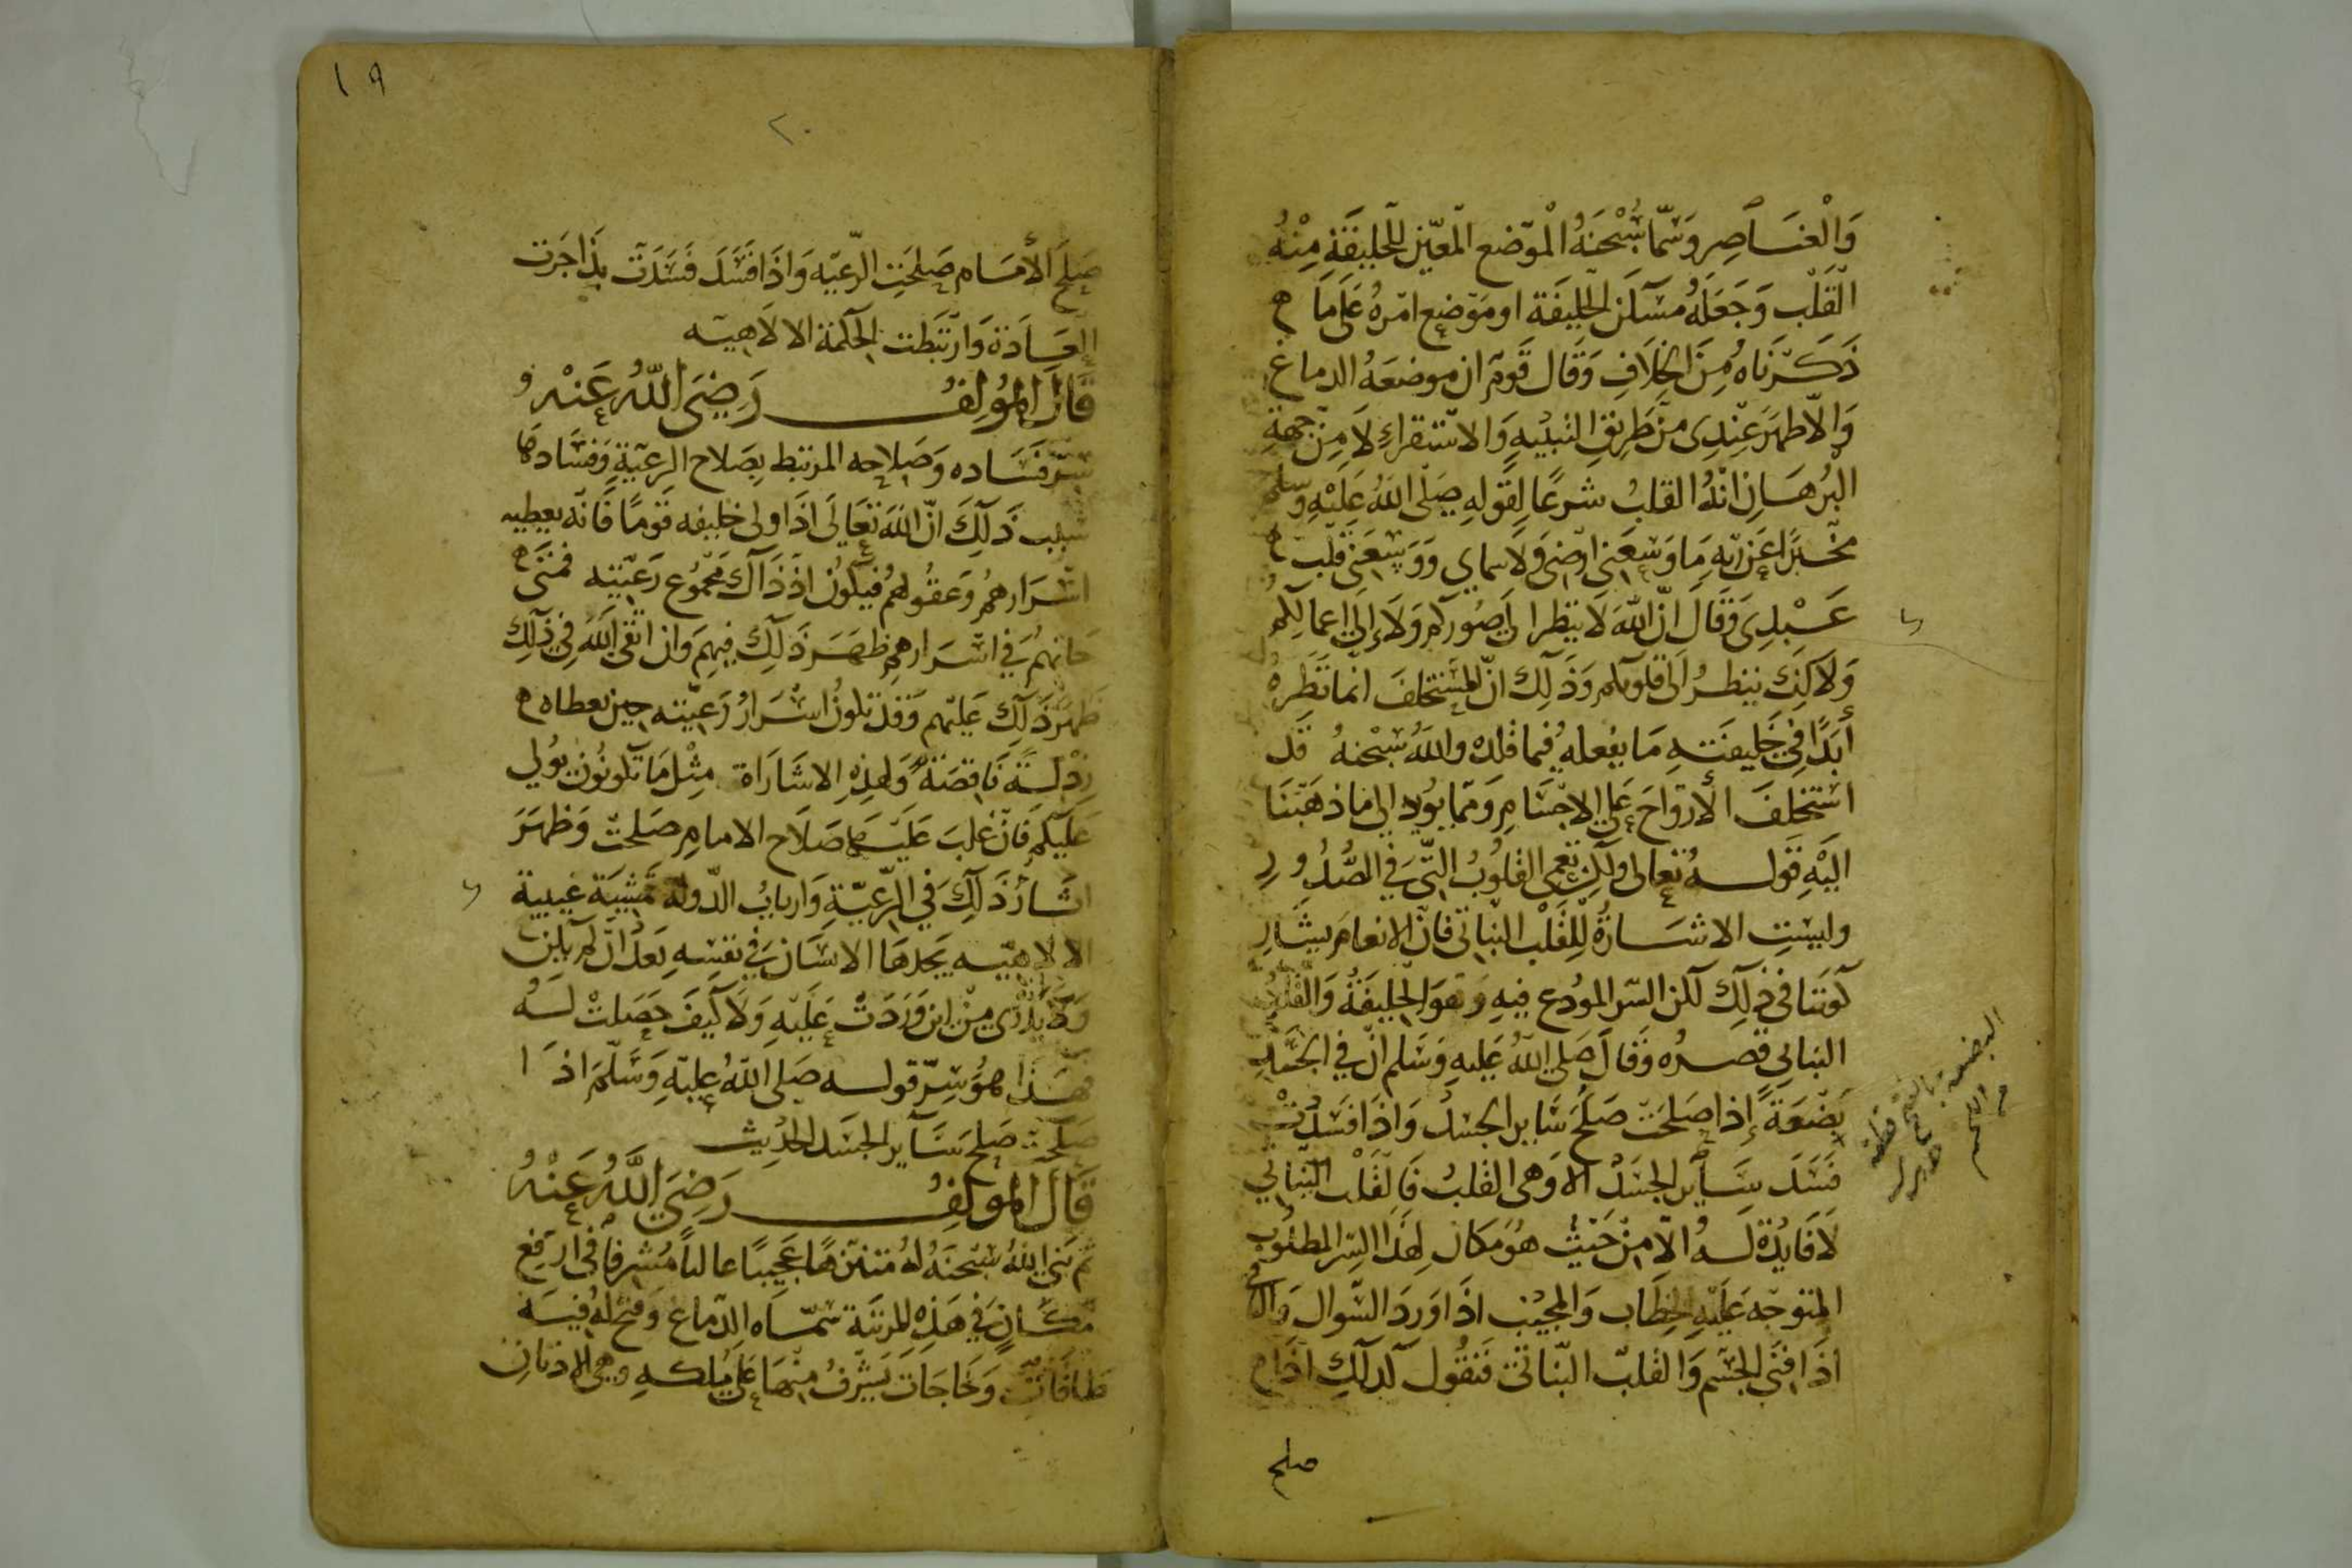 وَالْعَنَاصِر وَسَمّا سُبْحٰنَهُ الْمَوْضع المعّين للخليفَة مِنْهُ
القَلْب وَجَعَلَهُ مسْكن الخليفَة او مَوْضع امْرهُ عَلَى مَا
ذَكَرْنَاهُ مِنَ الخِلَافِ وَقَال قَومٌ ان موضعَهُ الدماغ
وَالاظهَر عِنْدِى مِنْ طَرِيقِ التنبيْهِ وَالاسْتقراءِ لَا مِنْ جهةِ
البُرْهَانِ انّهُ القلبُ شرعًا لِقَولهِ صَلّى اللهُ عَلَيْهِ وَسَلم
مخْبرًا عَن رَبّهِ مَا وَسِعَنى ارْضى وَلَا سماى وَوَسِعَنى قلبُ
عَبْدِى وَقَالَ انّ اللهَ لَا ينظر الى صُوَركم وَلَا إلى اعمالكم
وَلَاكن ينظرُ الى قلوبكم وَذَلِك انّ المسْتخلفَ انّما نَظَرهُ
أبَدًا فِى خَلِيفَتهِ مَا يفْعلهُ فيما قلدهُ واللهُ سُبْحٰنهُ قَد
اسْتخلفَ الأرْوَاحَ عَلى الاجْسَامِ وَممّا يؤيد الى مَا ذهَبْنَا
اليْهِ قَولهُ تعالى ولكن تعمى القلُوبُ التّى فِى الصُّدُورِ
وليستِ الاشَارَةُ لِلْقَلْب النّباتى فانّ الانعامَ يشَارِ
كونَنَا فى ذلِكَ لكن السّر المودَع فيهِ وَهوَ الخليفَةُ وَالقلْب
النباتى قصرُه وَقَالَ صَلى اللهُ عَليهِ وَسَلم انّ فى الجَسَدِ
بَضْعَةً إذا صَلحَتْ صَلحَ سَاير الجسَدُ وَاذَا فسَدَتْ
فَسَدَ سَاير الجَسَدُ الا وَهى القلبُ فَالقَلْب النّباتى
لَا فَايدَةَ لَهُ الاّ مِنْ حَيْثُ هوَ مَكان لِهَذَا السِّر المطلُوب
المتوجّه عَليْهِ الخِطَاب وَالمجيْب اذَا وَرَدَ السّوال وَالباقى
اذَا فنَى الجسْم وَالقلبّ النّباتى فَنقُول كذلِكَ اذَا
صلح
البضعة
صَلحَ الأمَام صَلحَتِ الرّعيّه وَاذَا فسَدَ فسَدَتْ بِذَا جَرَت
العَادَة وَارْتبَطت الحكمَة الالاهيّه
قَالَ المؤلفُ رَضِىَ اللهُ عَنْهُ
سِرّ فَسَاده وَصَلَاحه المرتبط بِصَلاح الرعيّةِ وَفسَادهَا
سَبب ذَلِكَ انّ اللهَ تَعَالَى اذَا ولى خليفه قَومًا فَانّه يعطيه
اسْرَارهُمْ وَعقُولهُمْ فيكونُ اذذَاكَ مَجْمُوع رَعيّته فمتَى
خَانهُم فِى اسْرَارهِم ظهَرَ ذَلِكَ فيهِم وَان اتقَى اللهَ فِى ذلِكَ
ظهرَ ذلِكَ عَليْهم وَقد تكونُ اسْرَارُ رَعيّته حِين يعطاه
رذْلَةً نَاقصَةً وَلهذِهِ الاشَارَاة مِثْل مَا تَكونُون يوُلى
عَليكم فَانْ غلبَ عَليْهَا صَلَاح الامامِ صَلحتْ وَظهَرَ
اثَارُ ذَلِكَ فى الرّعيّةِ وَاربابُ الدّولة مَشيئَة غيبية
الالاهيّه يجدهَا الانسَان فِى نفسِهِ بَعدَ انْ لم تكن
وَلَا يَدْرِى مِنْ اين وَرَدَتْ عَليْهِ وَلَا كيْفَ حَصَلتْ لَهُ
هَذَا هُوَ سِرّ قوله صَلى اللهُ عليْهِ وَسَلّمَ اذَا
صَلحَت صَلحَ سَاير الجسَد الحَدِيث
قَالَ المولفُ رَضِىَ اللهُ عَنْهُ
ثمّ بَنَى اللهُ سُبْحٰنَهُ لهُ مُتنزّهًا عَجيبًا عاليًا مُشرفًا فى ارفع
مكَانٍ فى هَذِهِ المدينَة سَمّاه الدّماغ وَفتحَ لهُ فيهِ
طاقَاتٍ وَخَاجَات يَشرْفُ منْهَا عَلَى مُلكهِ وهى الاذنانِ
١٩
٢٠